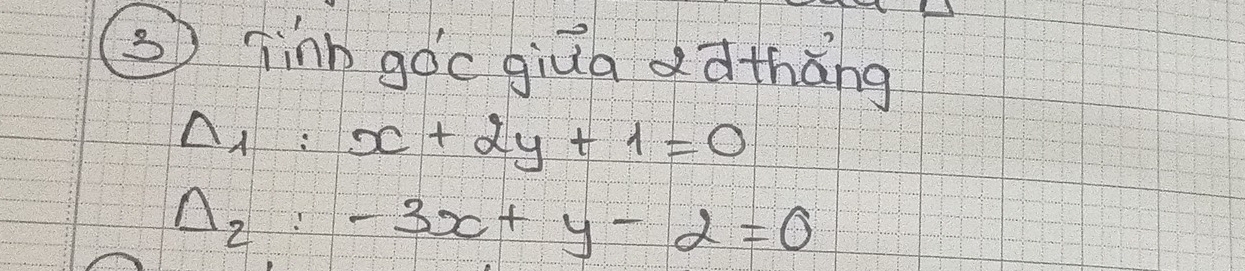 ③ Tính góc giữa 2 đthẳng
Δ₁ : x + 2y + 1 = 0
Δ₂ : -3x + y - 2 = 0